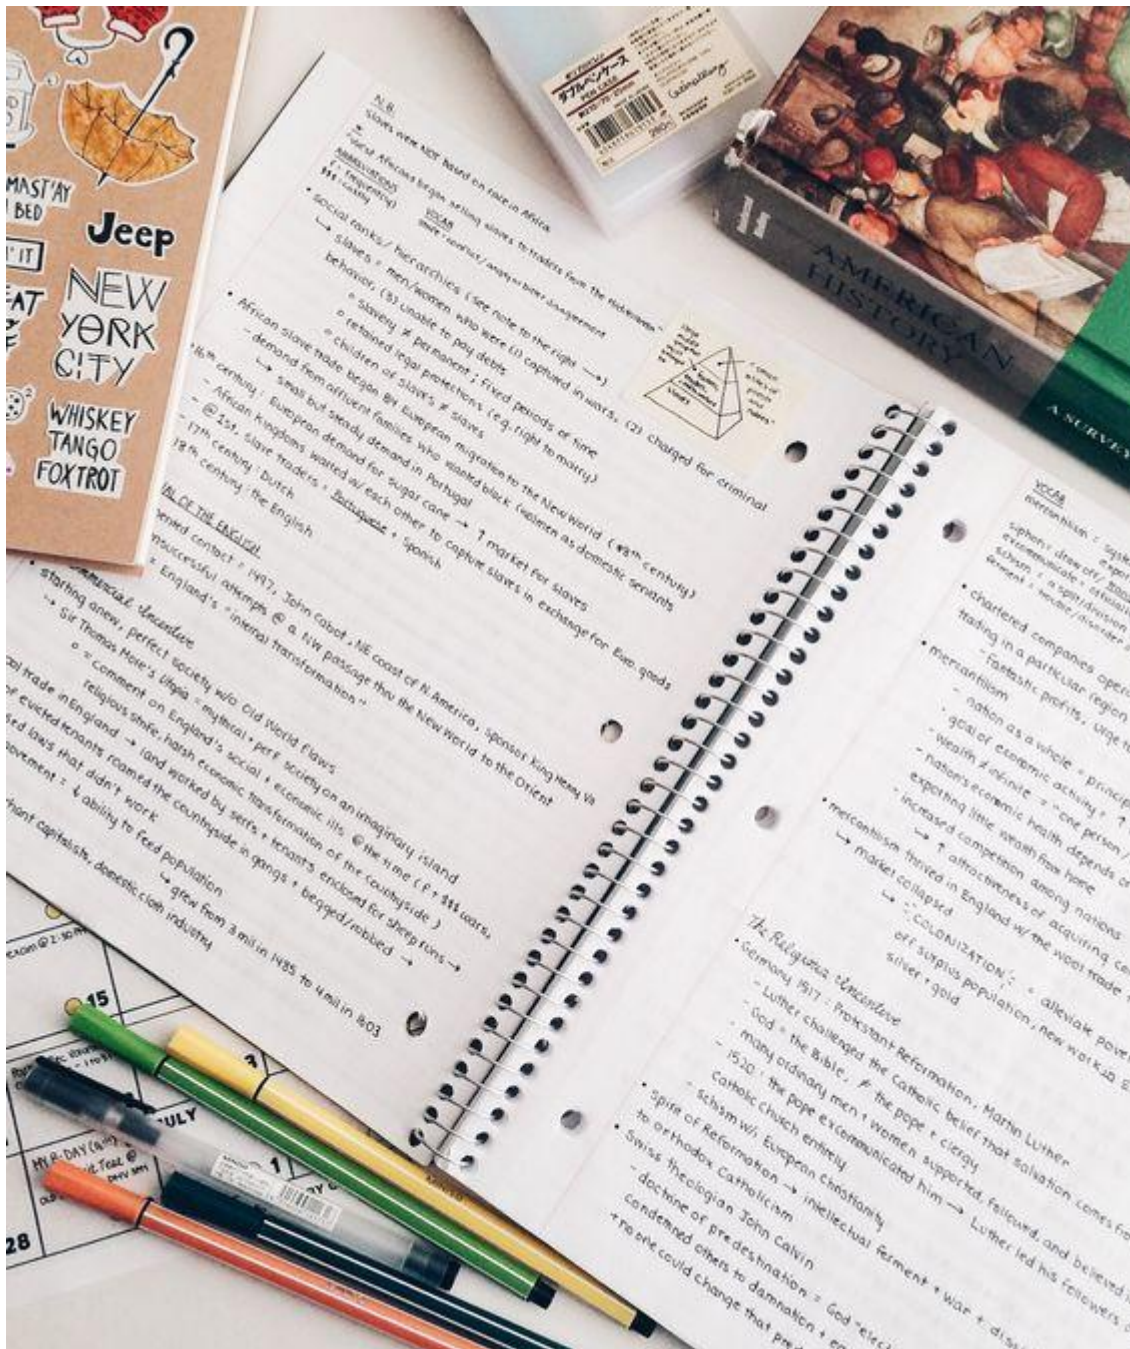 MAST'AY
BED
Jeep
'T IT
EAT
NEW
YORK
CITY
WHISKEY
TANGO
FOXTROT
ダブルペンケース
PEN CASE
AMERICAN
HISTORY
A SURVEY
N.B.
slaves were NOT based on race in Africa
West Africans began selling slaves to traders from the
ABBREVIATIONS
f: frequent(ly)
$$$: costly
VOCAB
• social ranks/hierarchies (see note to the right →)
↳ slaves = men/women who were (1) captured in wars, (2) charged for criminal
behavior, (3) unable to pay debts
○ slavery ≠ permanent; fixed periods of time
○ retained legal protections (e.g. right to marry)
○ children of slaves ≠ slaves
• African slave trade began B4 European migration to the New World (
- demand from affluent families who wanted black (wo)men as domestic servants
↳ small but steady demand in Portugal
• 16th century: European demand for sugar cane → ↑ market for slaves
- African kingdoms warred w/ each other to capture slaves in exchange for Euro. goods
- @ 1st, slave traders = Portuguese + Spanish
- 17th century: Dutch
18th century: the English
AL OF THE ENGLISH
mented contact = 1497, John Cabot, NE coast of N. America, sponsor King Henry VII
unsuccessful attempts @ a NW passage thru the New World to the Orient
= England's "internal transformation"
mmercial Incentive
• starting anew, perfect society w/o Old World flaws
↳ Sir Thomas More's Utopia = mythical + perf. society on an imaginary island
○ = comment on England's social + economic ills @ the time (f + $$$ wars,
religious strife, harsh economic transformation of the countryside)
ool trade in England → land worked by serfs + tenants enclosed for sheep runs →
of evicted tenants roamed the countryside in gangs + begged/robbed →
sed laws that didn't work
movement = ↓ ability to feed population
↳ grew from 3 mil in 1485 to 4 mil in 1603
chant capitalists, domestic cloth industry
VOCAB
mercantilism = syste
siphon: draw off/
excommunicate =
schism = a split/division
ferment = trouble/disorder
• chartered companies opera
trading in a particular region
- fantastic profits, urge to
• mercantilism
- nation as a whole = princip
- goal of economic activity = ↑
- wealth ≠ infinite = "one person/
- nation's economic health depends on
exporting little wealth from home
- increased competition among nations
↳ ↑ attractiveness of acquiring co
• mercantilism thrived in England w/ the wool trade
↳ market collapsed
↳ ∴ COLONIZATION; = alleviate pover
off surplus population, new work
silver + gold
The Religious Incentive
• Germany 1517: Protestant Reformation, Martin Luther
- Luther challenged the Catholic belief that salvation comes fro
- God = the Bible, ≠ the pope + clergy
- many ordinary men + women supported, followed, and believed
- 1520: the pope excommunicated him → Luther led his followers
Catholic church entirely
- schism w/ European christianity
• spirit of Reformation → intellectual ferment + war + dis
to orthodox Catholicism
• Swiss theologian John Calvin
- doctrine of predestination = God "elec
condemned others to damnation +
+ no one could change that pred
15
JULY
1
28